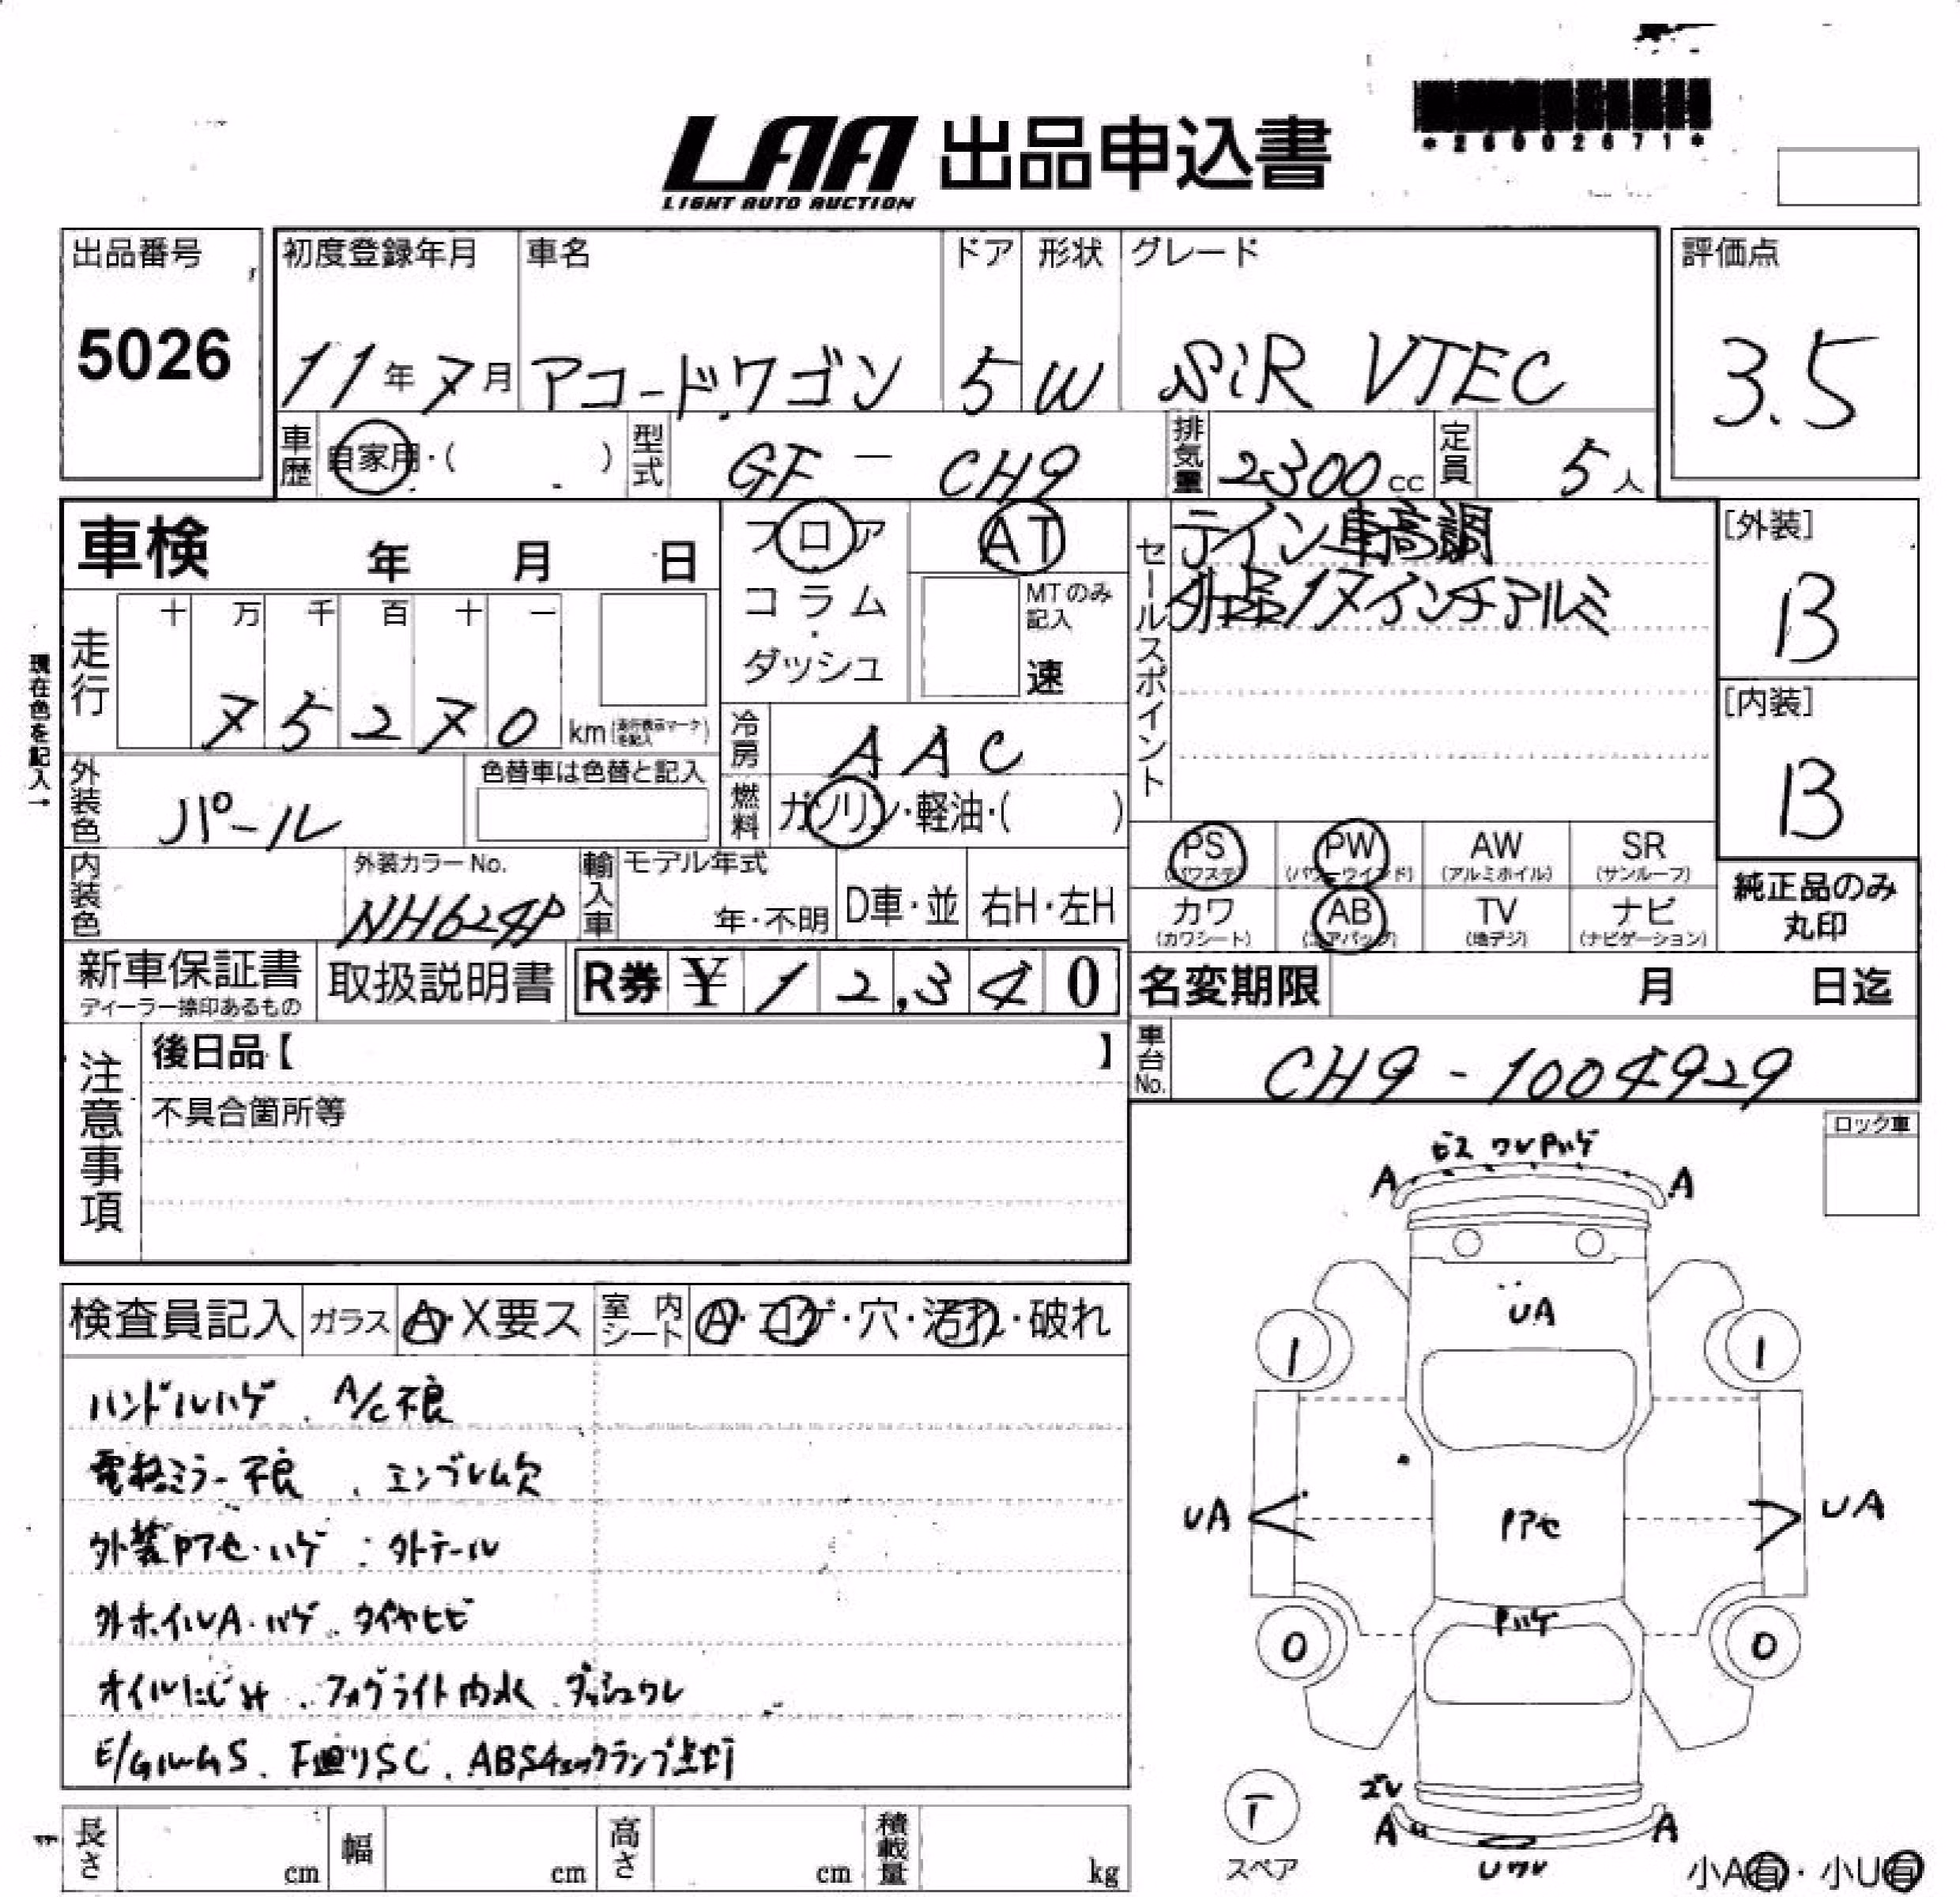 LAA 出品申込書
LIGHT AUTO AUCTION
出品番号
5026
初度登録年月
11年7月
車名
アコードワゴン
ドア
5
形状
W
グレード
SiR VTEC
評価点
3.5
車歴 自家用・( )
型式 GF - CH9
排気量 2300cc
定員 5人
車検 年 月 日
フロア
コラム
・
ダッシュ
AT
MTのみ記入
速
セールスポイント
テイン車高調
社外17インチアルミ
[外装]
B
[内装]
B
現在色を記入→
走行
十 万 千 百 十 一
7 5 2 7 0 km (走行表示マークを記入)
冷房 AAC
燃料 ガソリン・軽油・( )
外装色 パール
色替車は色替と記入
内装色
外装カラーNo.
NH624P
輸入車
モデル年式
年・不明
D車・並
右H・左H
PS
(パワステ)
PW
(パワーウインド)
AW
(アルミホイル)
SR
(サンルーフ)
カワ
(カワシート)
AB
(エアバッグ)
TV
(地デジ)
ナビ
(ナビゲーション)
純正品のみ
丸印
新車保証書
ディーラー捺印あるもの
取扱説明書
R券 ¥ 12,340
名変期限 月 日迄
車台No. CH9-1004929
注意事項
後日品【 】
不具合箇所等
ロック車
検査員記入
ガラス A・X要ス
室内シート A・コゲ・穴・汚れ・破れ
ハンドルハゲ、A/C不良
電格ミラー不良、エンブレム欠
外装Pアセ・ハゲ 外テール
外ホイルA・ハゲ、タイヤヒビ
オイルにじみ、フォグライト内水、ダッシュワレ
E/GルームS、F廻りSC、ABSチェックランプ点灯
ビス ワレ Pハゲ
A A
UA
1 1
UA UA
Pアセ
Pハゲ
0 0
ズレ
A A
Uワレ
T
スペア
小A有・小U有
長さ cm
幅 cm
高さ cm
積載量 kg